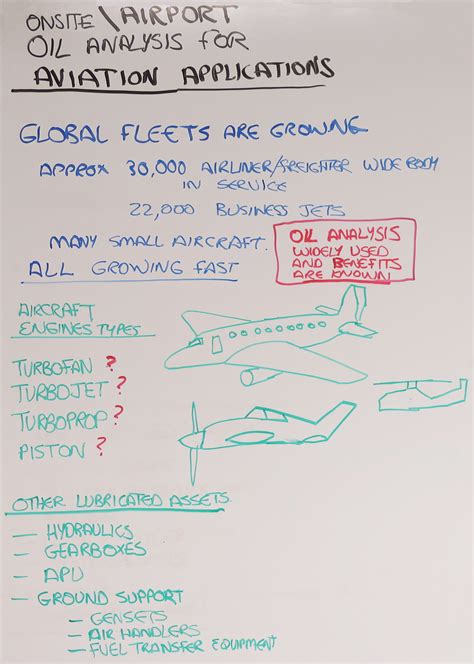 ONSITE\AIRPORT
OIL ANALYSIS FOR
AVIATION APPLICATIONS
GLOBAL FLEETS ARE GROWING
APPROX 30,000 AIRLINER/FREIGHTER WIDE BODY
IN SERVICE
22,000 BUSINESS JETS
MANY SMALL AIRCRAFT.
ALL GROWING FAST
OIL ANALYSIS
WIDELY USED
AND BENEFITS
ARE KNOWN
AIRCRAFT
ENGINES TYPES
TURBOFAN ?
TURBOJET ?
TURBOPROP ?
PISTON ?
OTHER LUBRICATED ASSETS
— HYDRAULICS
— GEARBOXES
— APU
— GROUND SUPPORT
— GENSETS
— AIR HANDLERS
— FUEL TRANSFER EQUIPMENT